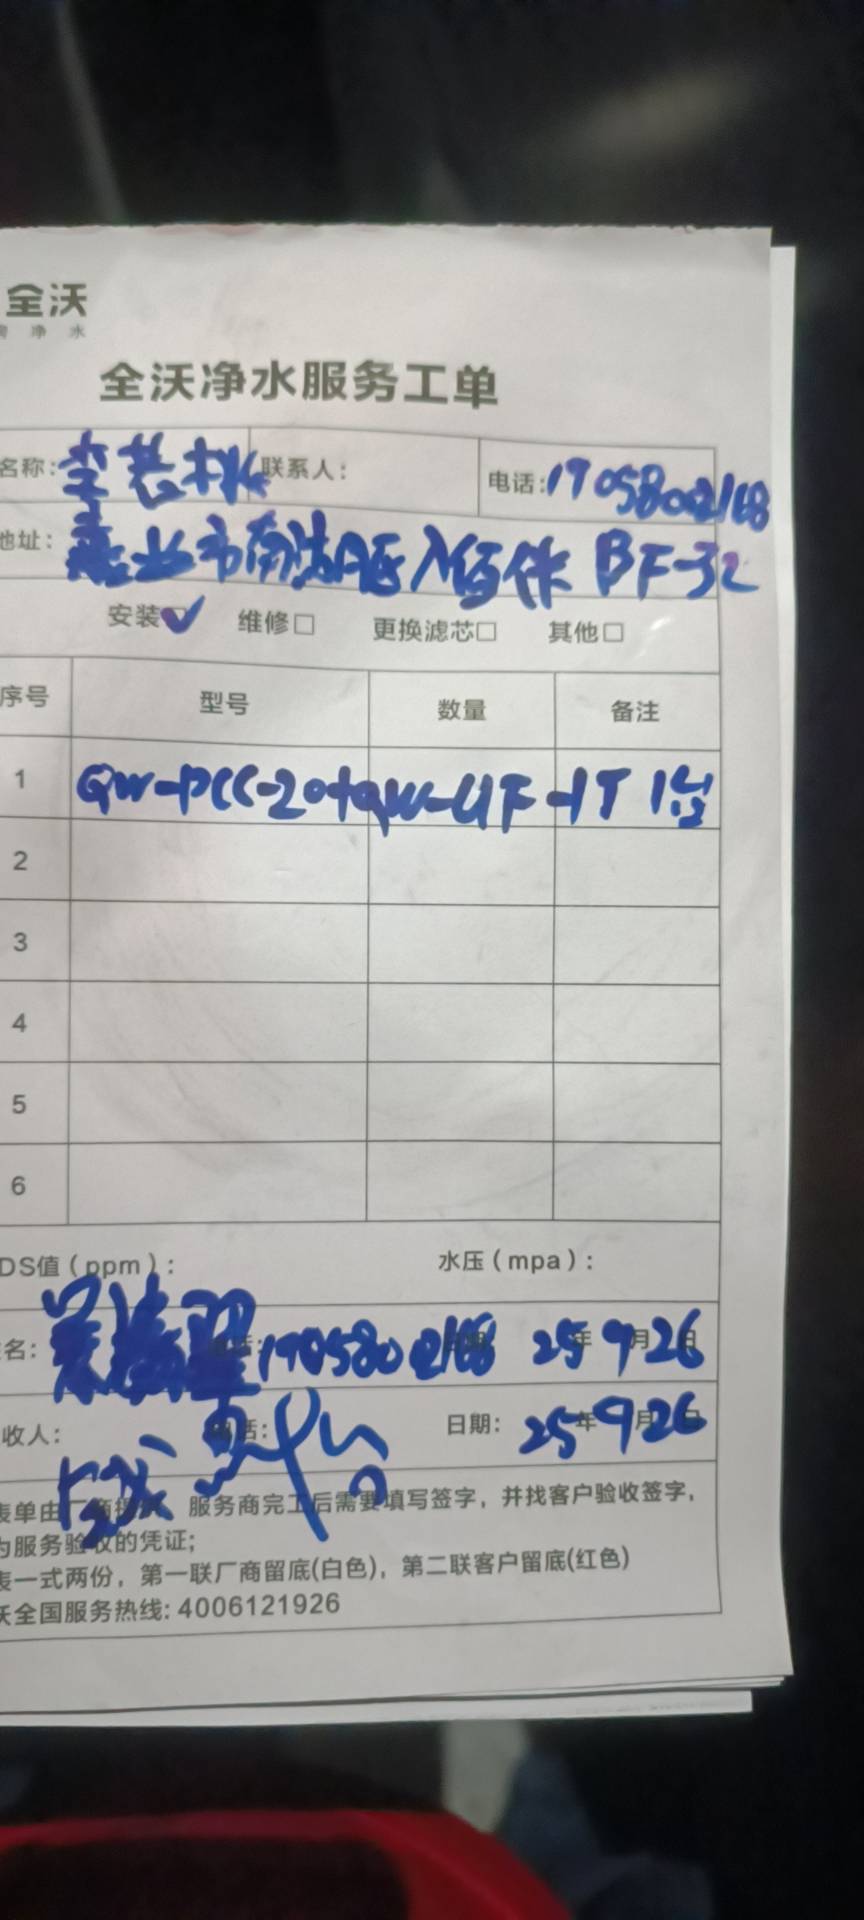 全沃
净水
全沃净水服务工单
名称: 联系人: 电话: 17058002168
地址: 嘉兴市南湖区八佰伴 BF-32
安装☑ 维修□ 更换滤芯□ 其他□
序号 型号 数量 备注
1 QW-PCC-20+QW-UF-1T 1台
2
3
4
5
6
DS值(ppm): 水压(mpa):
名: 17058002168 25年9月26日
收人: 日期: 25年9月26日
表单由厂商提供，服务商完工后需要填写签字，并找客户验收签字，
为服务验收的凭证;
表一式两份，第一联厂商留底(白色)，第二联客户留底(红色)
沃全国服务热线: 4006121926